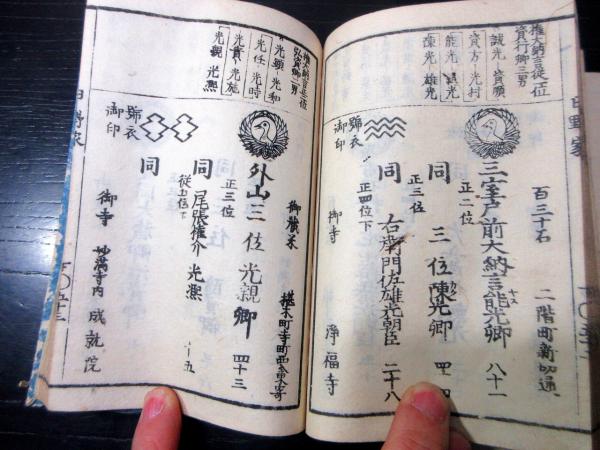 日野家
権大納言従一位
資行卿二男
誠光－資順
資方－光村
能光
陳光－雄光
百三十石
二階町新切通
三室戸前大納言能光卿
八十一
正二位
同
三位陳光卿
正三位
四十四
同
右衛門佐雄光朝臣
正四位下
二十八
雑衣
御印
御寺
浄福寺
権大納言正二位
弘資卿二男
光顕－光和
光任－光時
光實－光施
光親
光熙
御蔵米
椹木町寺町西
外山三位光親卿
正三位
四十三
同
尾張権介光熙
従五位下
十五
同
雑衣
御印
御寺
妙満寺内成就院
日野家